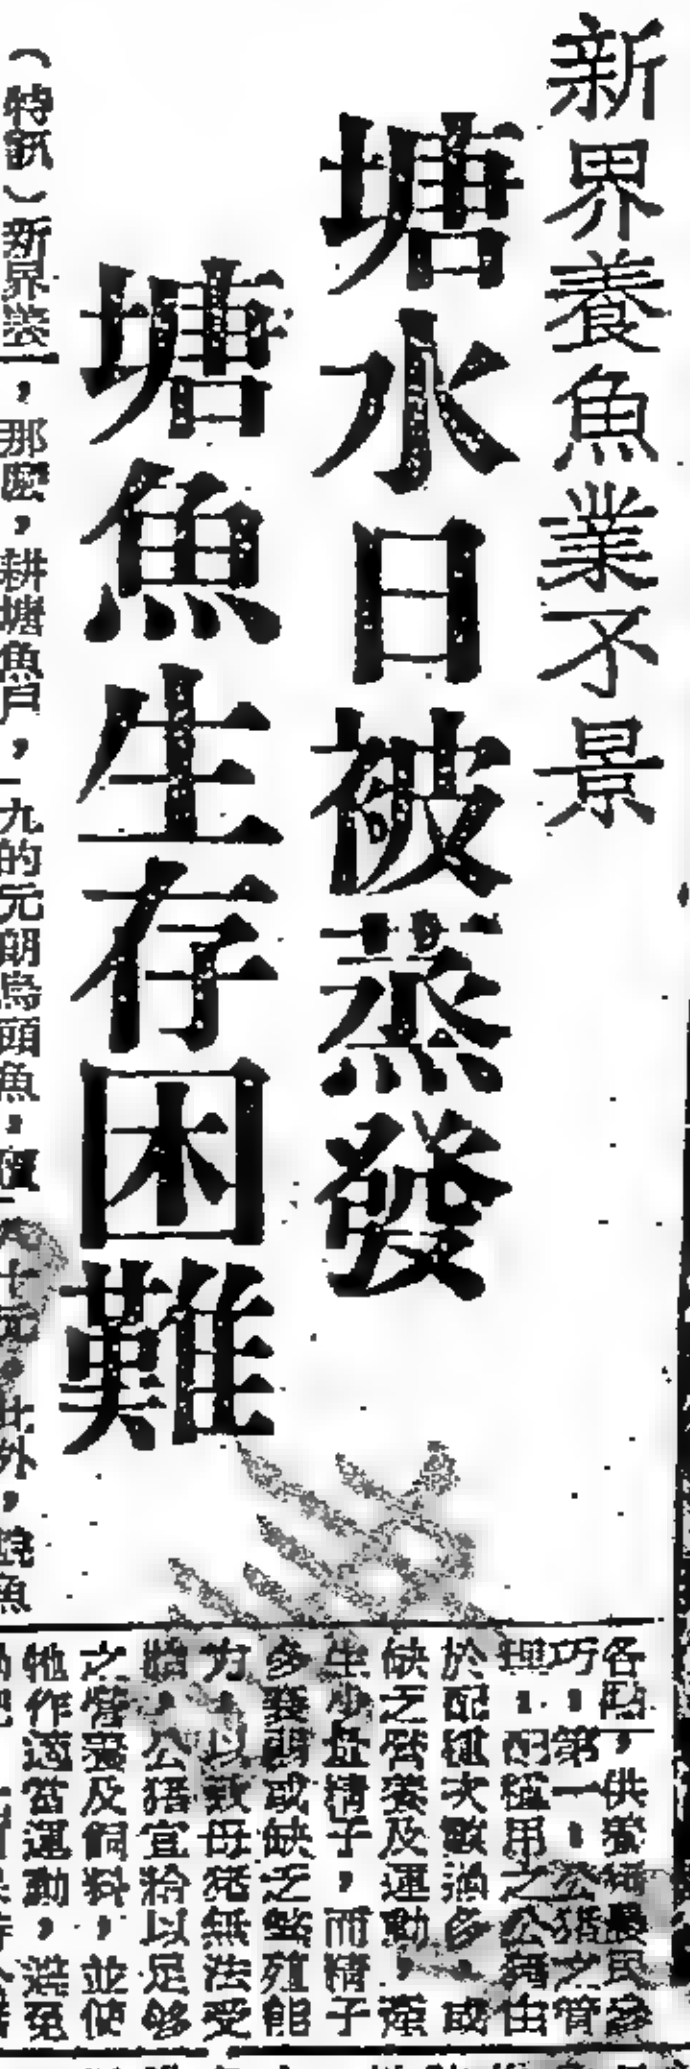 新界養魚業不景
塘水日被蒸發
塘魚生存困難
（特訊）新界養，那麼，耕塘魚戶，一九的元朗烏頭魚，十元，此外，鯇魚
各點，供養豬農民參
巧，第一，公猪之管
理，配種用之公猪由
於配種次數過多，或
缺乏營養及運動，產
生少量精子，而精子
多衰弱或缺乏繁殖能
力，以致母猪無法受
胎，公猪宜給以足够
之營養及飼料，並使
牠作適當運動，避免